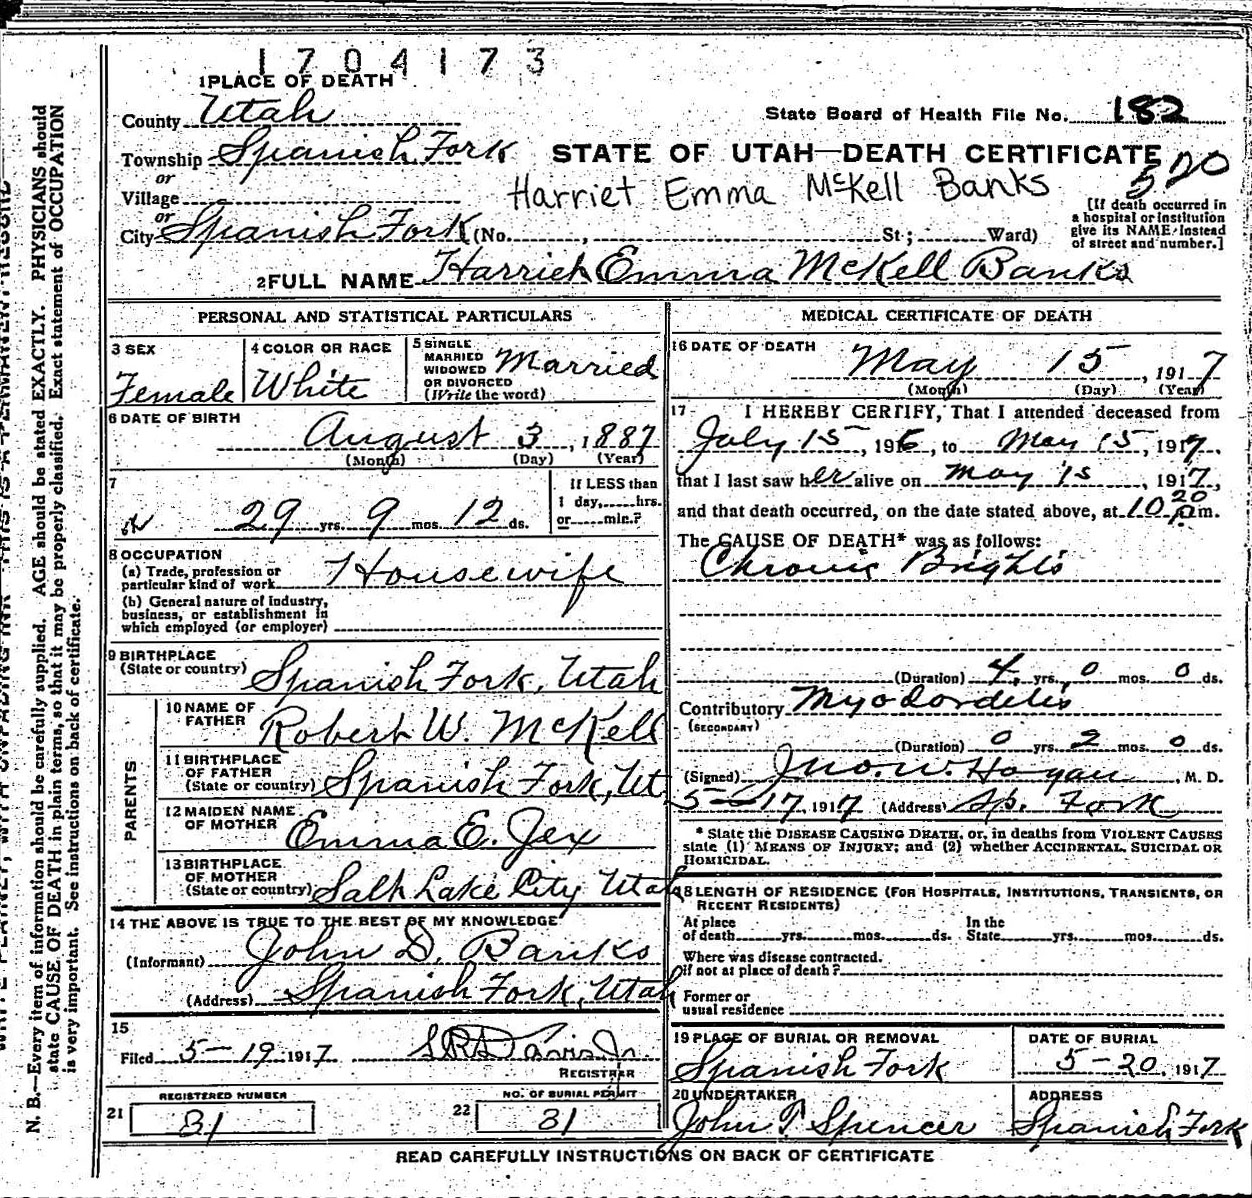 1704173
1 PLACE OF DEATH
County Utah
State Board of Health File No. 182
Township Spanish Fork
STATE OF UTAH—DEATH CERTIFICATE
520
or
Village
Harriet Emma McKell Banks
or
City Spanish Fork (No. , St; Ward)
[If death occurred in
a hospital or institution
give its NAME instead
of street and number.]
2 FULL NAME Harriet Emma McKell Banks
PERSONAL AND STATISTICAL PARTICULARS
3 SEX
Female
4 COLOR OR RACE
White
5 SINGLE
MARRIED
WIDOWED
OR DIVORCED
(Write the word)
Married
6 DATE OF BIRTH
August 3, 1887
(Month) (Day) (Year)
7
29 yrs. 9 mos. 12 ds.
If LESS than
1 day, hrs.
or min.?
8 OCCUPATION
(a) Trade, profession or
particular kind of work Housewife
(b) General nature of industry,
business, or establishment in
which employed (or employer)
9 BIRTHPLACE
(State or country) Spanish Fork, Utah
PARENTS
10 NAME OF
FATHER Robert W. McKell
11 BIRTHPLACE
OF FATHER
(State or country) Spanish Fork, Ut
12 MAIDEN NAME
OF MOTHER Emma E. Jex
13 BIRTHPLACE
OF MOTHER
(State or country) Salt Lake City Utah
14 THE ABOVE IS TRUE TO THE BEST OF MY KNOWLEDGE
(Informant) John D. Banks
(Address) Spanish Fork, Utah
15
Filed 5-19, 1917 Davis Jr
REGISTRAR
REGISTERED NUMBER
21 31
NO. OF BURIAL PERMIT
22 31
MEDICAL CERTIFICATE OF DEATH
16 DATE OF DEATH
May 15, 1917
(Month) (Day) (Year)
17 I HEREBY CERTIFY, That I attended deceased from
July 15, 1916, to May 15, 1917,
that I last saw her alive on May 15, 1917,
and that death occurred, on the date stated above, at 10 20 P.m.
The CAUSE OF DEATH* was as follows:
Chronic Brights
(Duration) 4 yrs. 0 mos. 0 ds.
Contributory
(SECONDARY)
(Duration) 0 yrs 2 mos. 0 ds.
(Signed) Jno. W. Hogan, M. D.
5-17, 1917 (Address) Sp. Fork
* State the DISEASE CAUSING DEATH, or, in deaths from VIOLENT CAUSES
state (1) MEANS OF INJURY; and (2) whether ACCIDENTAL, SUICIDAL OR
HOMICIDAL.
18 LENGTH OF RESIDENCE (FOR HOSPITALS, INSTITUTIONS, TRANSIENTS, OR
RECENT RESIDENTS)
At place
of death yrs. mos. ds.
In the
State yrs. mos. ds.
Where was disease contracted.
if not at place of death?
Former or
usual residence
19 PLACE OF BURIAL OR REMOVAL
Spanish Fork
DATE OF BURIAL
5-20, 1917
20 UNDERTAKER
John T. Spencer
ADDRESS
Spanish Fork
READ CAREFULLY INSTRUCTIONS ON BACK OF CERTIFICATE
N. B.—Every item of information should be carefully supplied. AGE should be stated EXACTLY. PHYSICIANS should
state CAUSE OF DEATH in plain terms, so that it may be properly classified. Exact statement of OCCUPATION
is very important. See instructions on back of certificate.